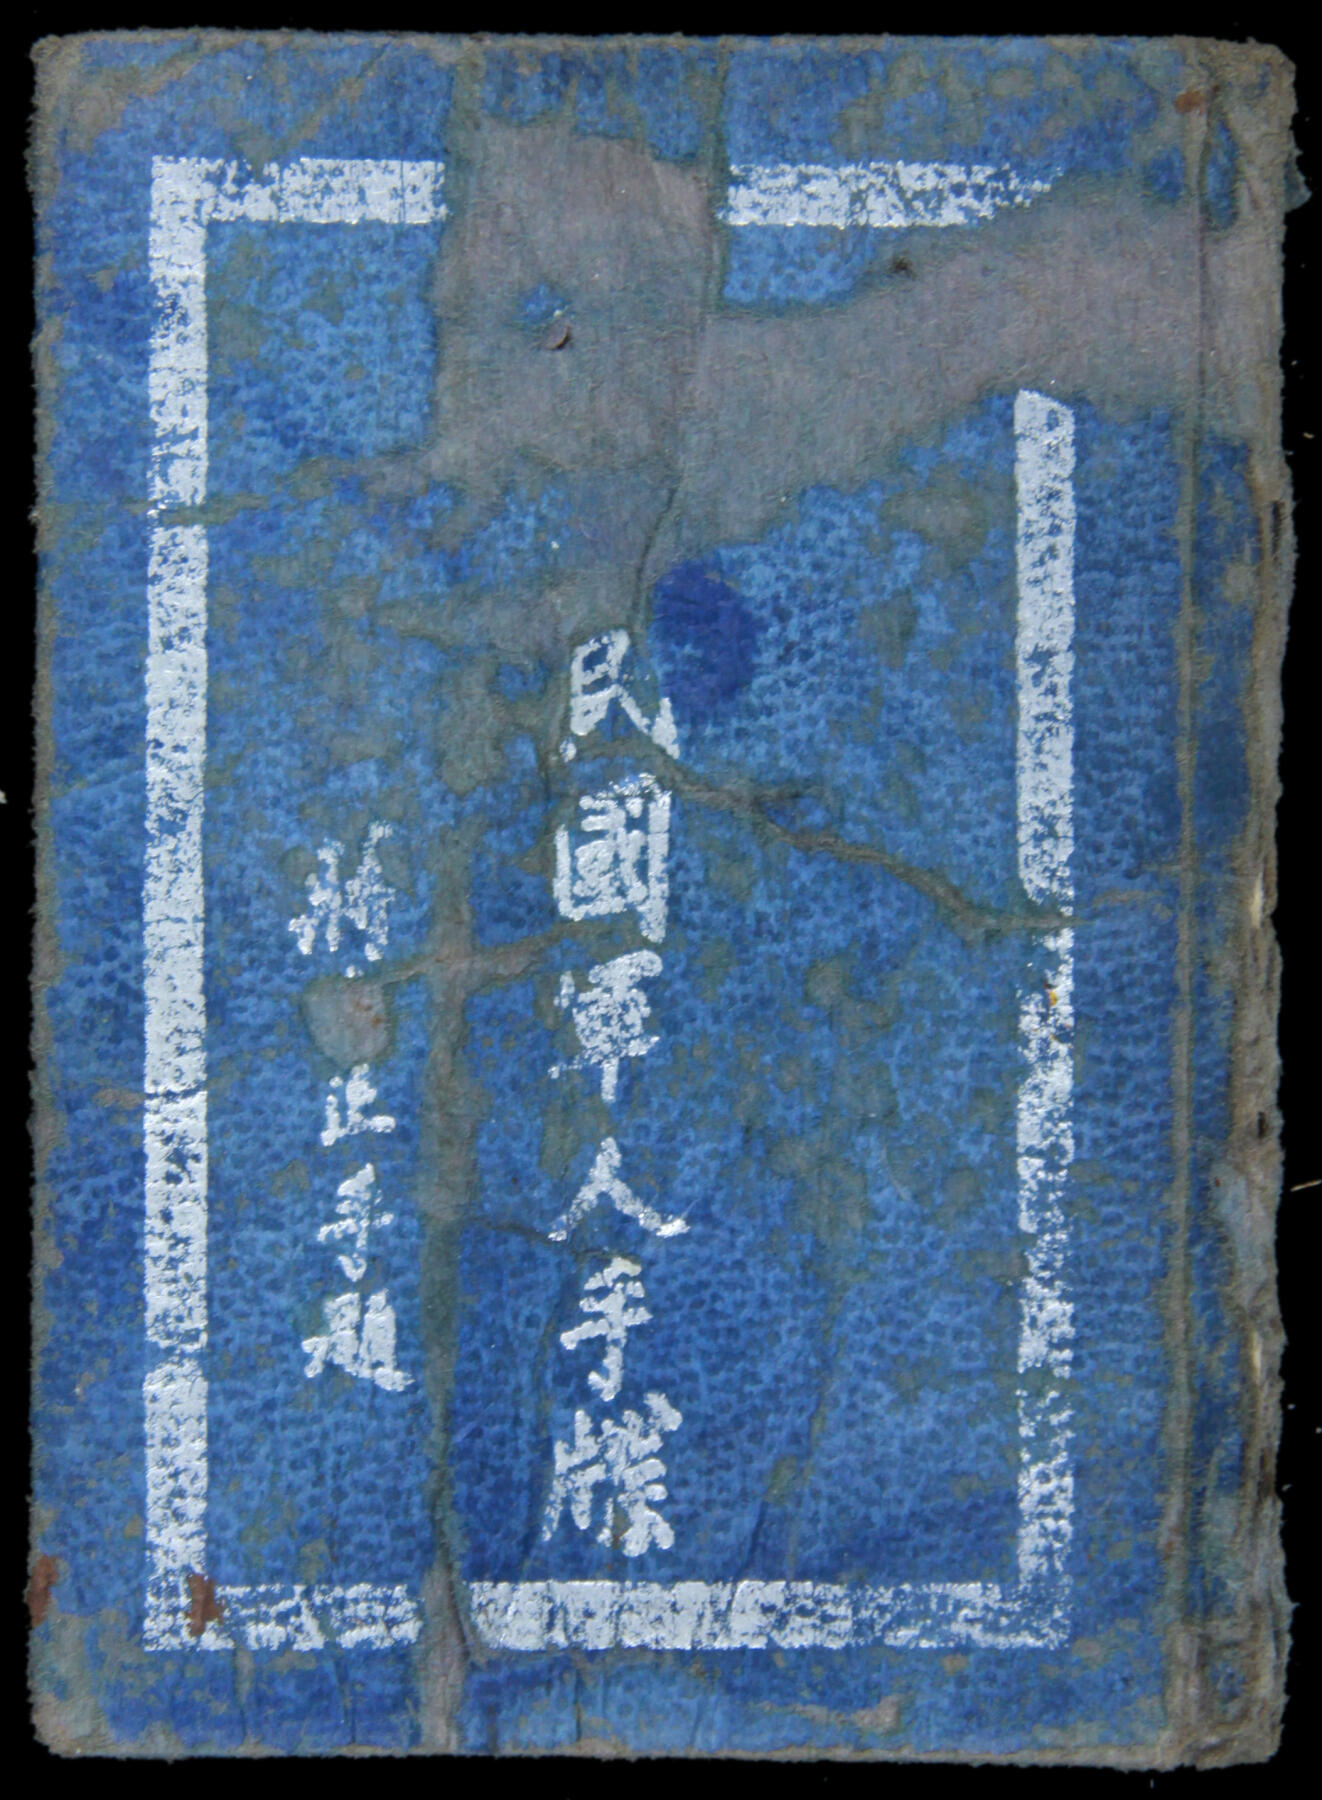 民國軍人手牒
蔣正手題